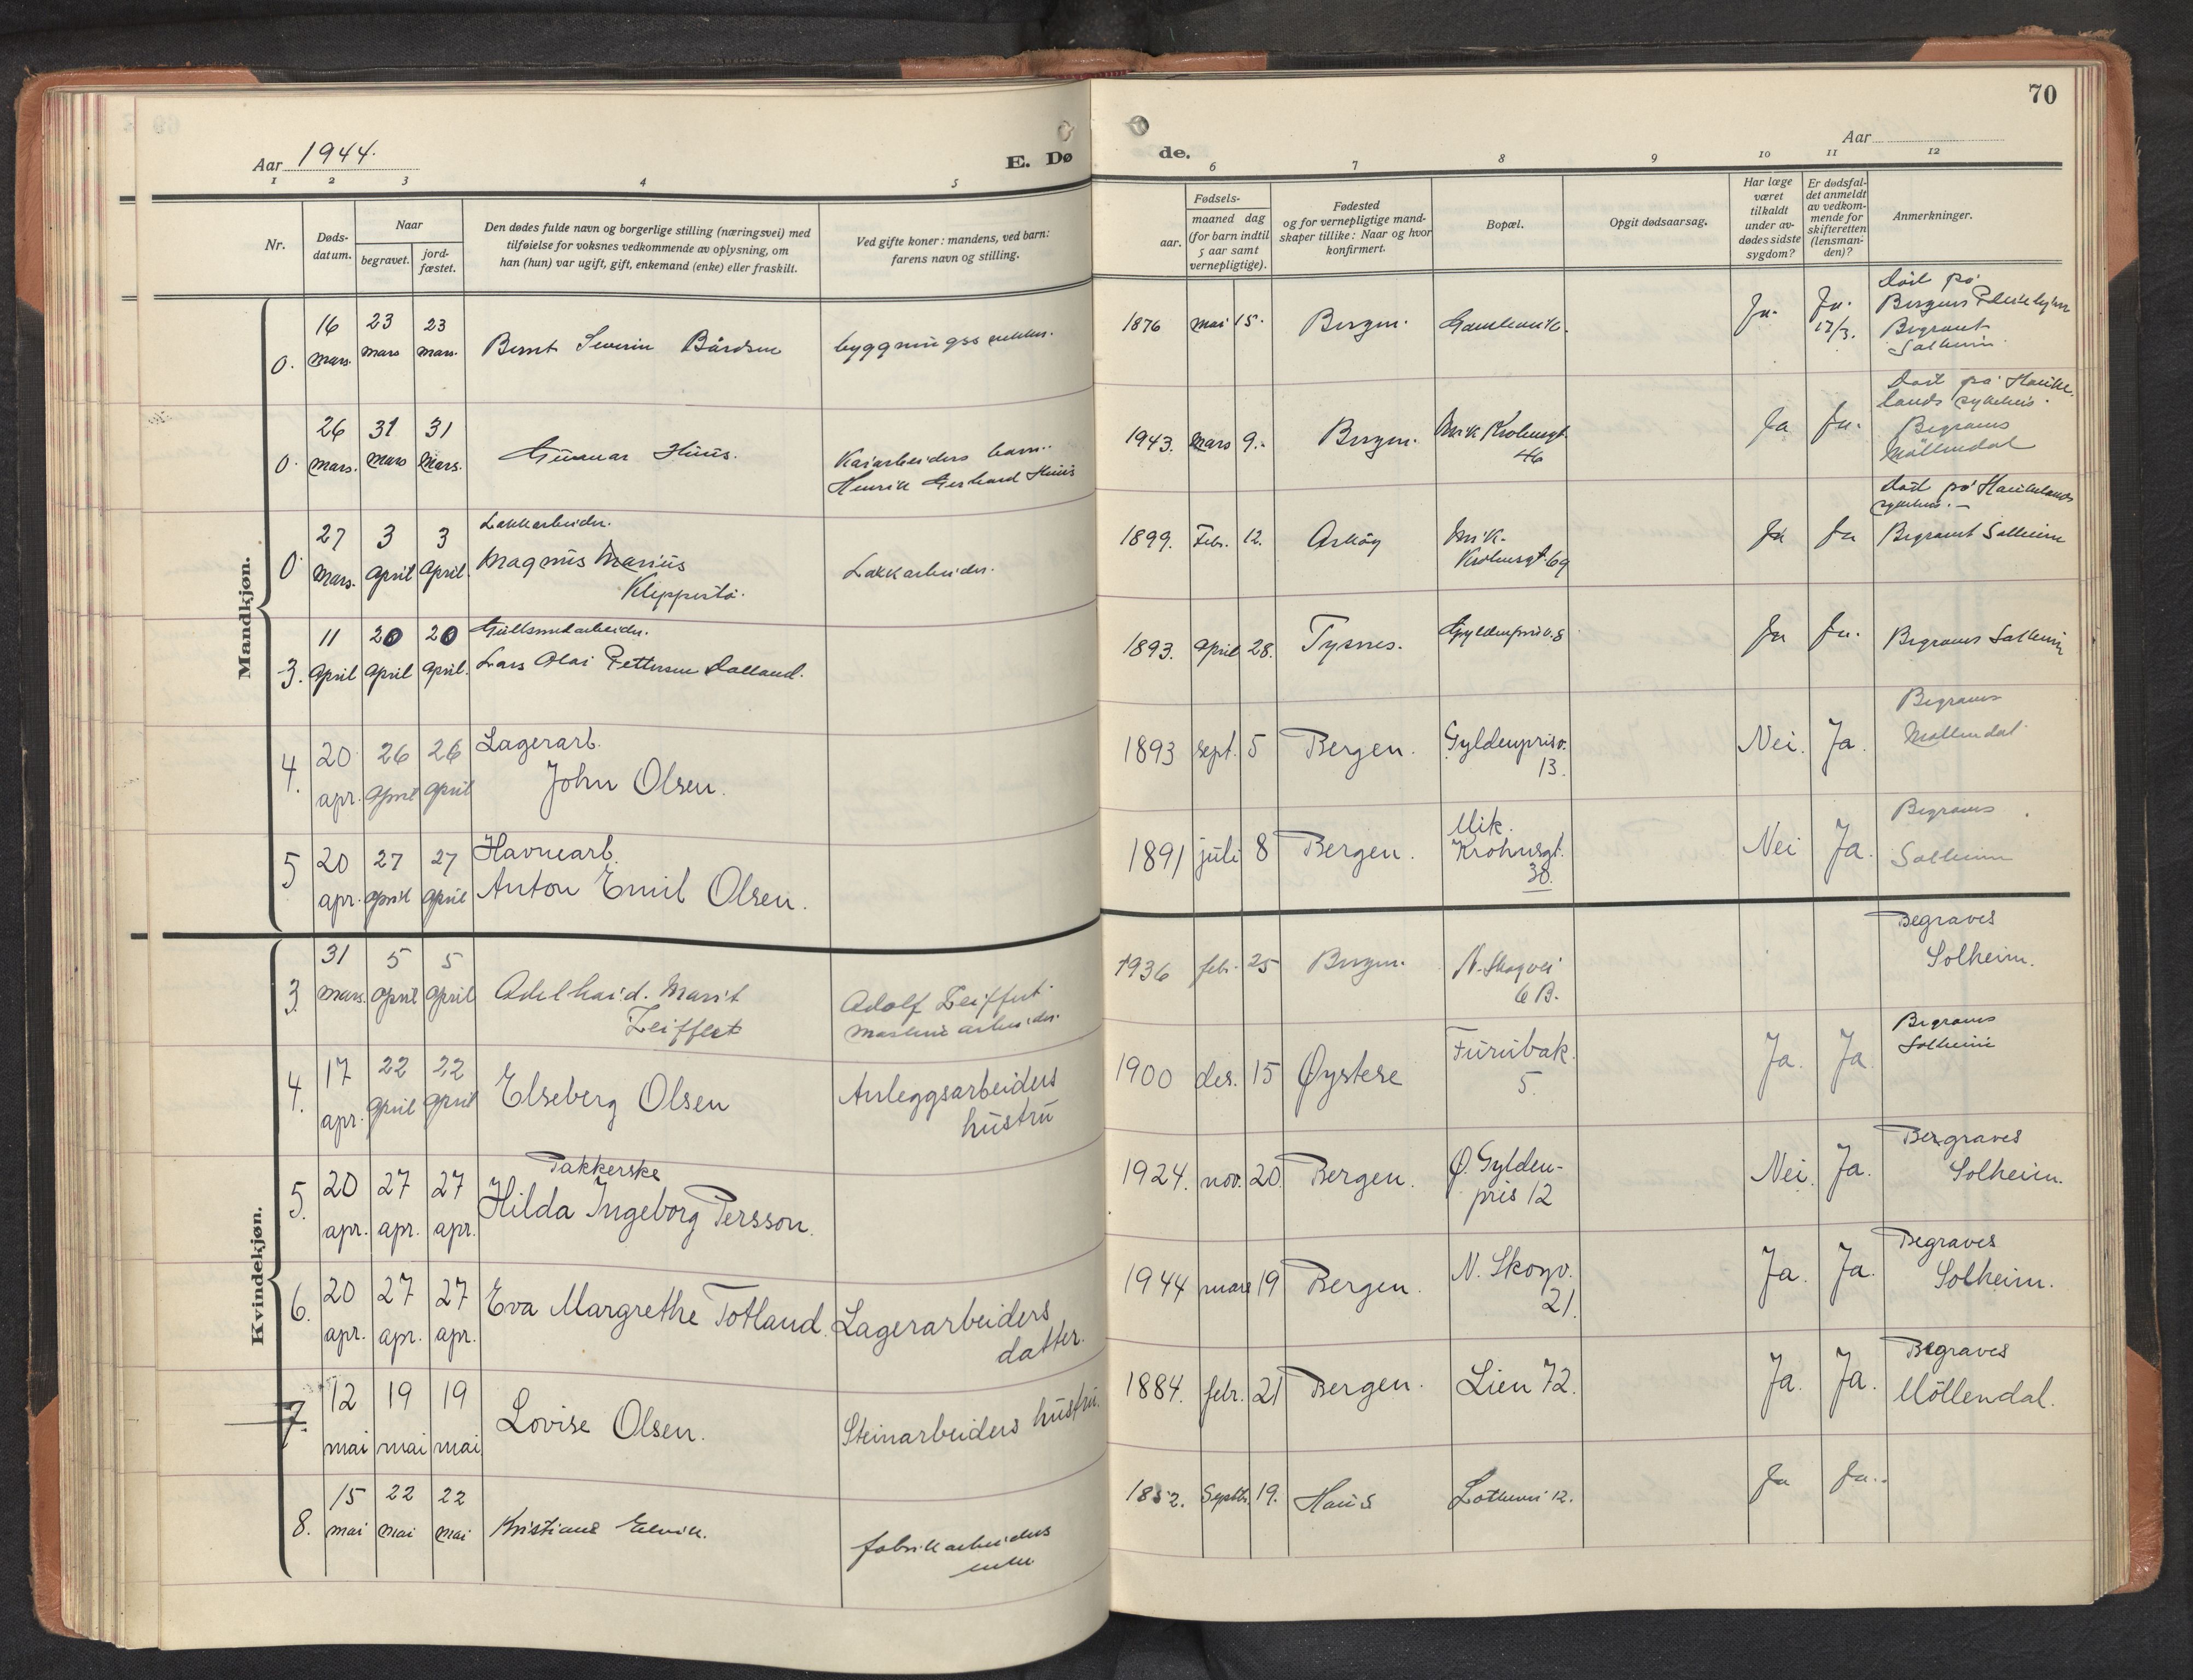 70
Aar 1944.
E. Dø
de.
Aar
1 2 3 4 5
6 7 8 9 10 11 12
Nr.
Døds-
datum.
Naar
begravet.
jord-
fæstet.
Den dødes fulde navn og borgerlige stilling (næringsvei) med
tilføielse for voksnes vedkommende av oplysning, om
han (hun) var ugift, gift, enkemand (enke) eller fraskilt.
Ved gifte koner: mandens, ved barn:
farens navn og stilling.
Fødsels-
aar.
maaned dag
(for barn indtil
5 aar samt
vernepligtige).
Fødested
og for vernepligtige mand-
skaper tillike: Naar og hvor
konfirmert.
Bopæl.
Opgit dødsaarsag.
Har læge
været
tilkaldt
under av-
dødes sidste
sygdom?
Er dødsfal-
det anmeldt
av vedkom-
mende for
skifteretten
(lensman-
den)?
Anmerkninger.
Mandkjøn.
0. 16 mars. 23 mars 23 mars. Bernt Severin Bårdsen
1876 mai 15. Bergen. Ja. Ja. 17/3.
Død på
Bergens Pleiehjem
Begravet
Solheim.
0. 26 mars. 31 mars 31 mars. Gunnar Huus.
Kaiarbeiders barn.
Henrik Gerhard Huus
1943. mars 9. Bergen. Mik Krohnsgt.
46
Ja Ja.
Død på Hauke-
lands sykehus.
Begraves
Møllendal
0. 27 mars. 3 april 3 april. Lakkarbeider.
Magnus Marius
Klippestø.
Lakkarbeider.
1899. Febr. 12. Askøy Mik.
Krohnsgt. 69
Ja Ja
Død på Haukelands
sykehus.
Begravet Solheim
3. 11 april 20 april 20 april. Gullsmedarbeider.
Lars Olai Pettersen Dalland.
1893. april 28. Tysnes. Gyldenprisv. 8 Ja Ja. Begraves Solheim
4. 20 apr. 26 april 26 april Lagerarb.
John Olsen.
1893 sept. 5 Bergen. Gyldenprisv.
13.
Nei. Ja.
Begraves
Møllendal
5 20 apr. 27 april 27 april Havnearb.
Anton Emil Olsen.
1891 juli 8 Bergen. Mik.
Krohnsgt.
38.
Nei Ja.
Begraves
Solheim
Kvindekjøn.
3. 31 mars. 5 april 5 april Adelhaid. Marit
Zeiffert
Adolf Zeiffert
Maskinarbeider.
1936 febr. 25 Bergen. N. Skogvei
6 B.
Begraves
Solheim.
4. 17 apr. 22 april 22 april Elseberg Olsen
Anleggsarbeiders
hustru
1900 des. 15 Øystese Furubak.
5.
Ja. Ja.
Begraves
Solheim
5. 20 apr. 27 apr. 27 apr. Pakkerske
Hilda Ingeborg Persson.
1924. nov. 20. Bergen. Ø. Gylden-
pris 12
Nei. Ja.
Begraves
Solheim.
6. 20 apr. 27 apr. 27 apr. Eva Margrethe Totland.
Lagerarbeiders
datter.
1944 mars 19 Bergen. N. Skogv.
21.
Ja. Ja.
Begraves
Solheim.
7. 12 mai 19 mai 19 mai Lovise Olsen.
Steinarbeiders hustru.
1884. febr. 21 Bergen. Lien 72. Ja. Ja.
Begraves
Möllendal.
8. 15 mai 22 mai 22 mai Kristiane
fabrikkarbeiders
enke
1852. Septbr. 19. Haus 12. Ja Ja.